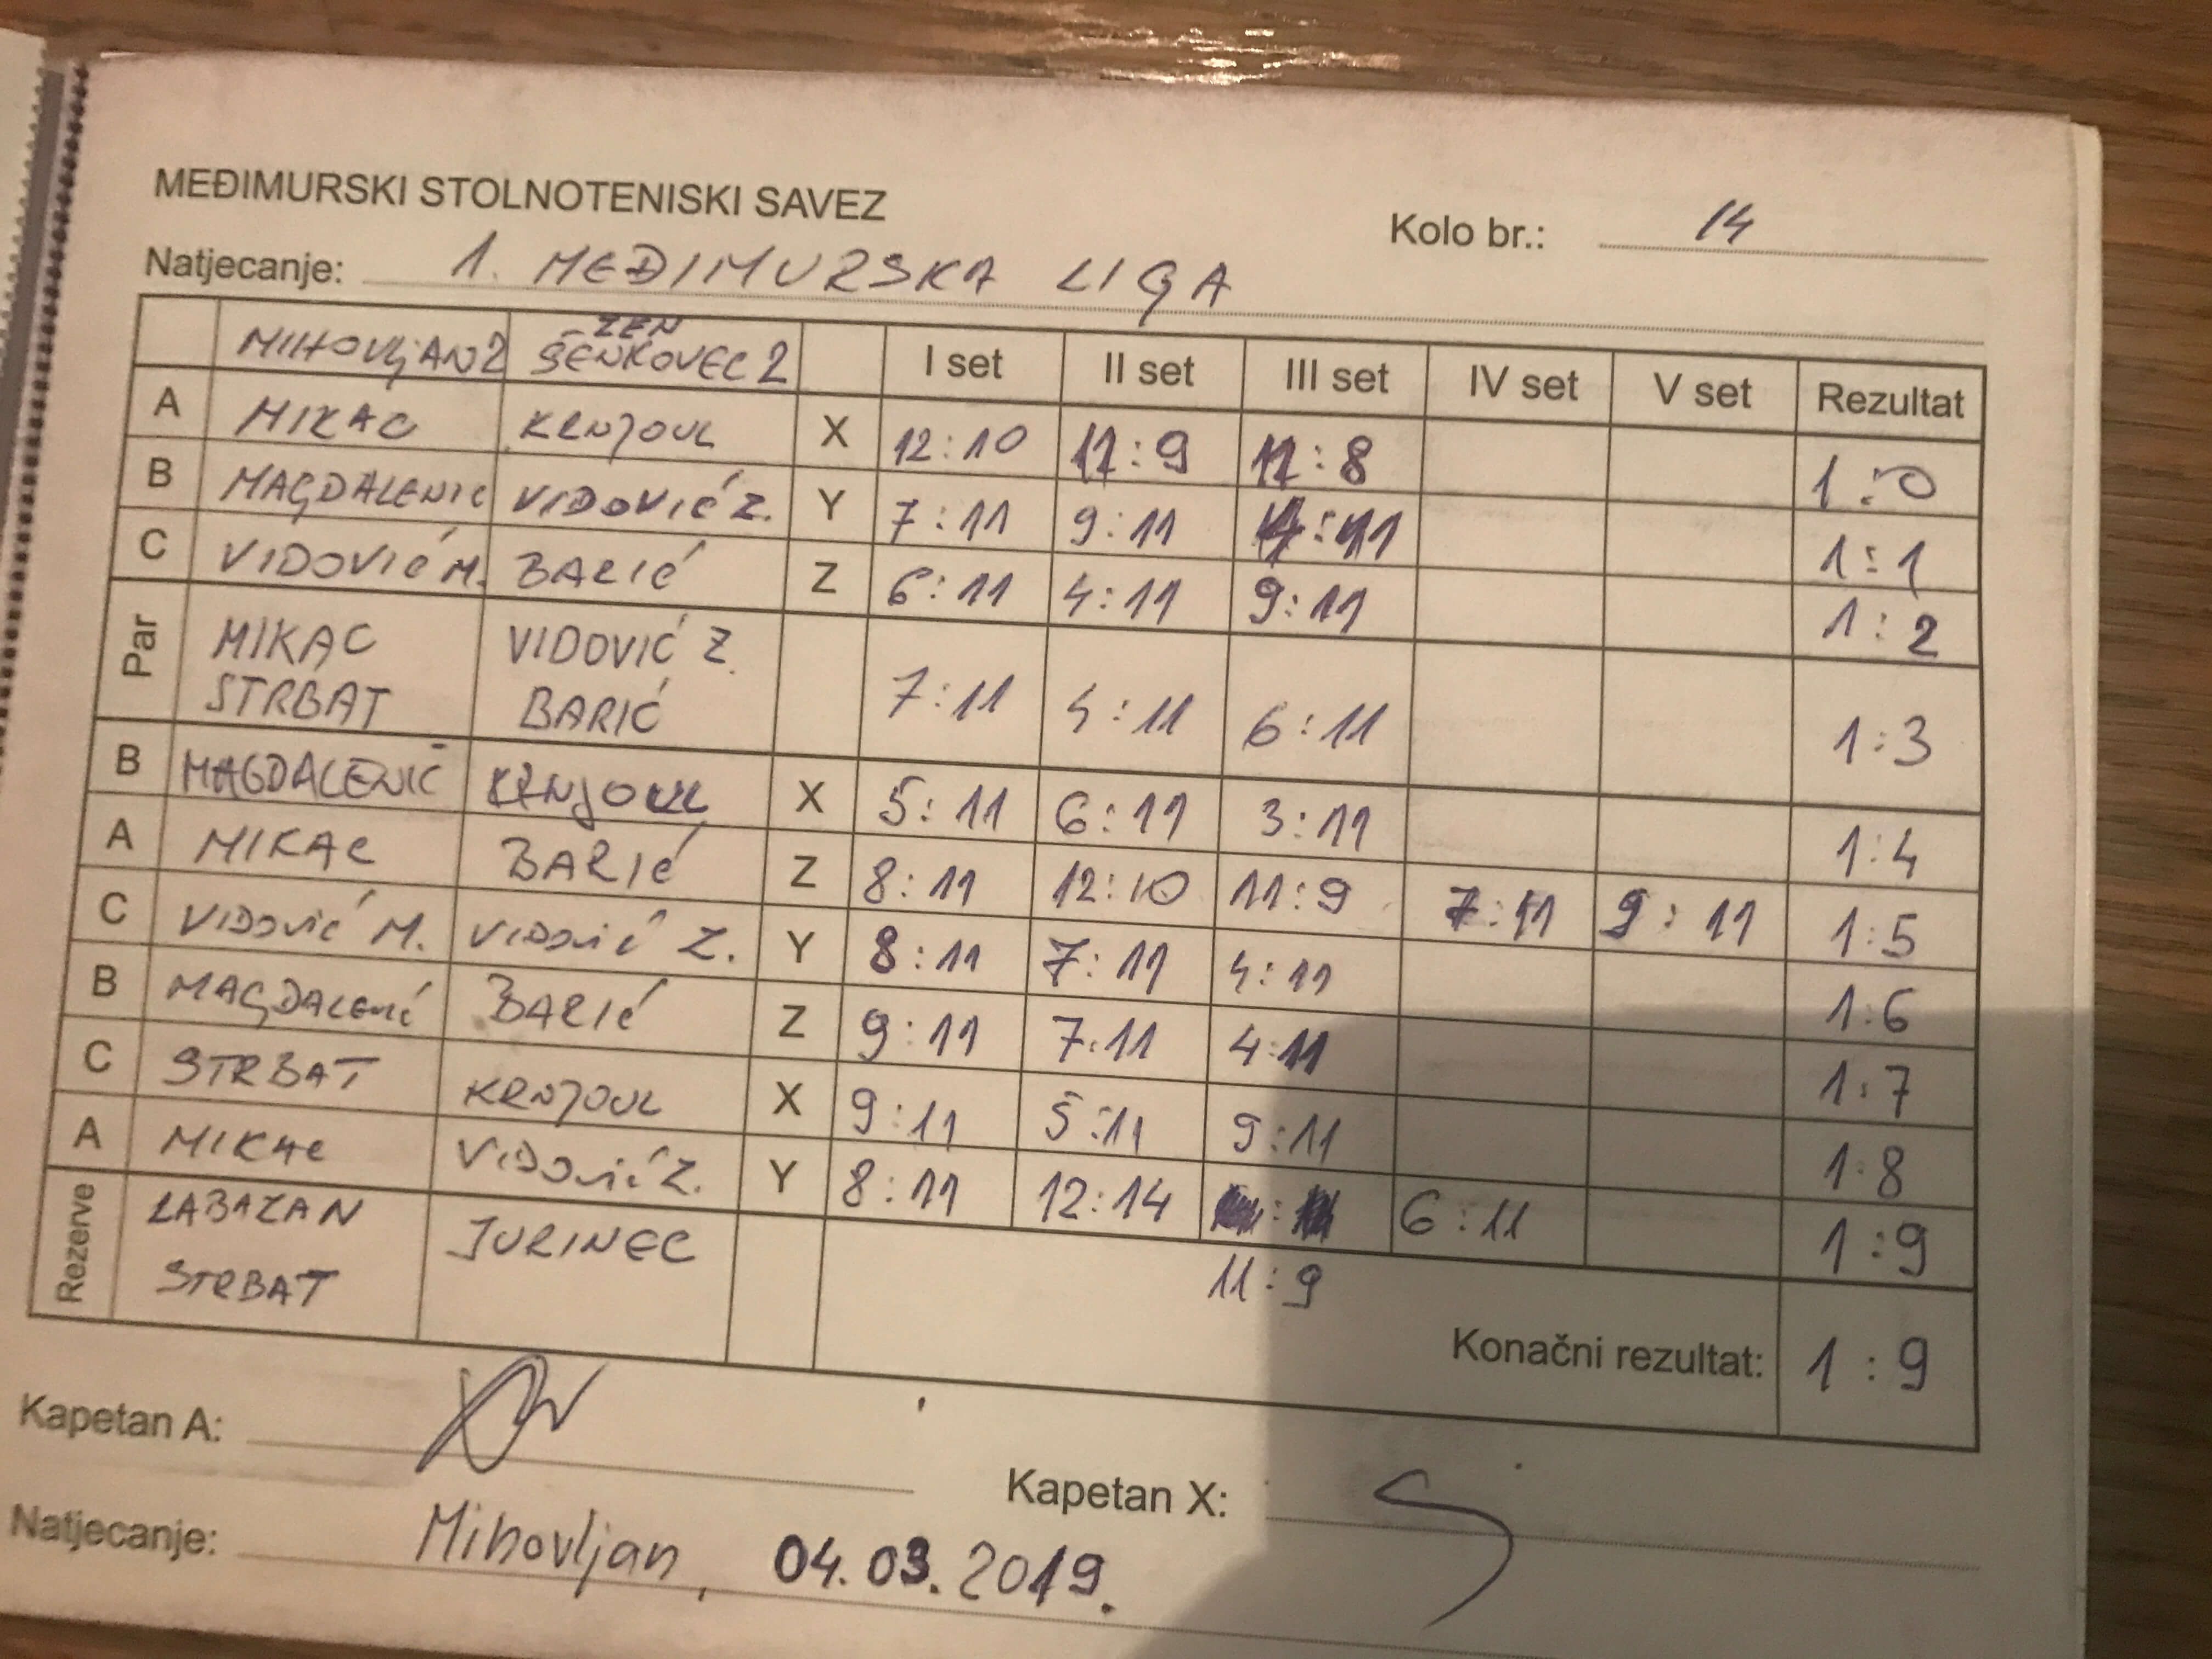 MEĐIMURSKI STOLNOTENISKI SAVEZ
Kolo br.: 14
Natjecanje: 1. MEĐIMURSKA LIGA
MIHOVLjAN 2 ZEN ŠENKOVEC 2 I set II set III set IV set V set Rezultat
A MIKAC KRNJOUL X 12:10 11:9 11:8 1:0
B MAGDALENIĆ VIDOVIĆ Z. Y 7:11 9:11 4:11 1:1
C VIDOVIĆ M. BARIĆ Z 6:11 4:11 9:11 1:2
Par MIKAC VIDOVIĆ Z.
STRBAT BARIĆ 7:11 4:11 6:11 1:3
B MAGDALENIĆ KRNJOUL X 5:11 6:11 3:11 1:4
A MIKAC BARIĆ Z 8:11 12:10 11:9 7:11 9:11 1:5
C VIDOVIĆ M. VIDOVIĆ Z. Y 8:11 7:11 4:11 1:6
B MAGDALENIĆ BARIĆ Z 9:11 7:11 4:11 1:7
C STRBAT KRNJOUL X 9:11 5:11 9:11 1:8
A MIKAC VIDOVIĆ Z. Y 8:11 12:14 6:11 1:9
Rezerve LABAZAN JURINEC
STRBAT 11:9
Konačni rezultat: 1:9
Kapetan A:
Kapetan X:
Natjecanje: Mihovljan, 04.03.2019.